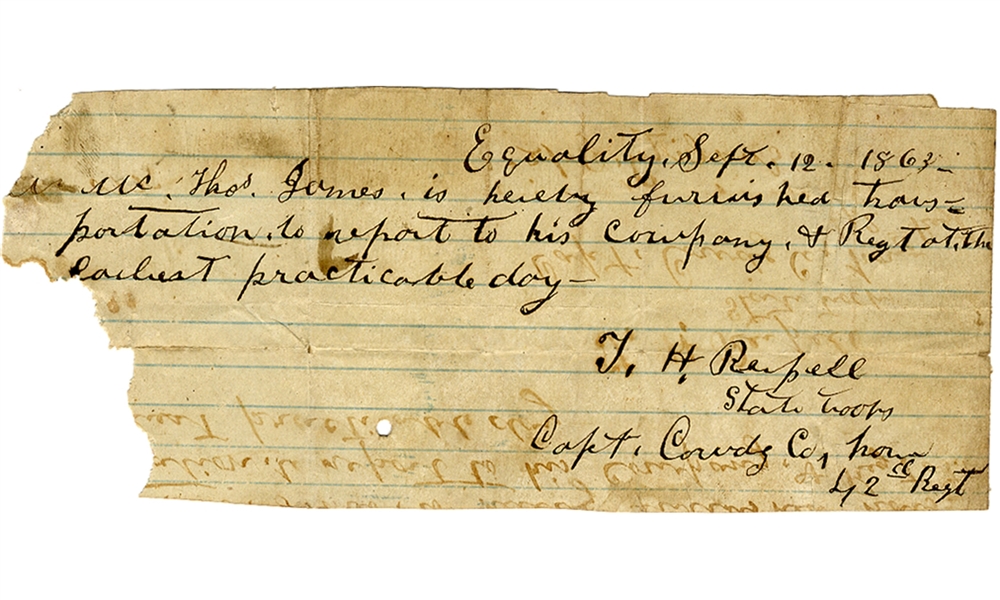 Equality, Sept. 12. 1863-
Mc. Thos. James. is hereby furnished trans=
portation. to report to his company. & Regt at the
earliest practicable day-
T. H. Russell
State troops
Capt. Comdg Co, from
42d Regt